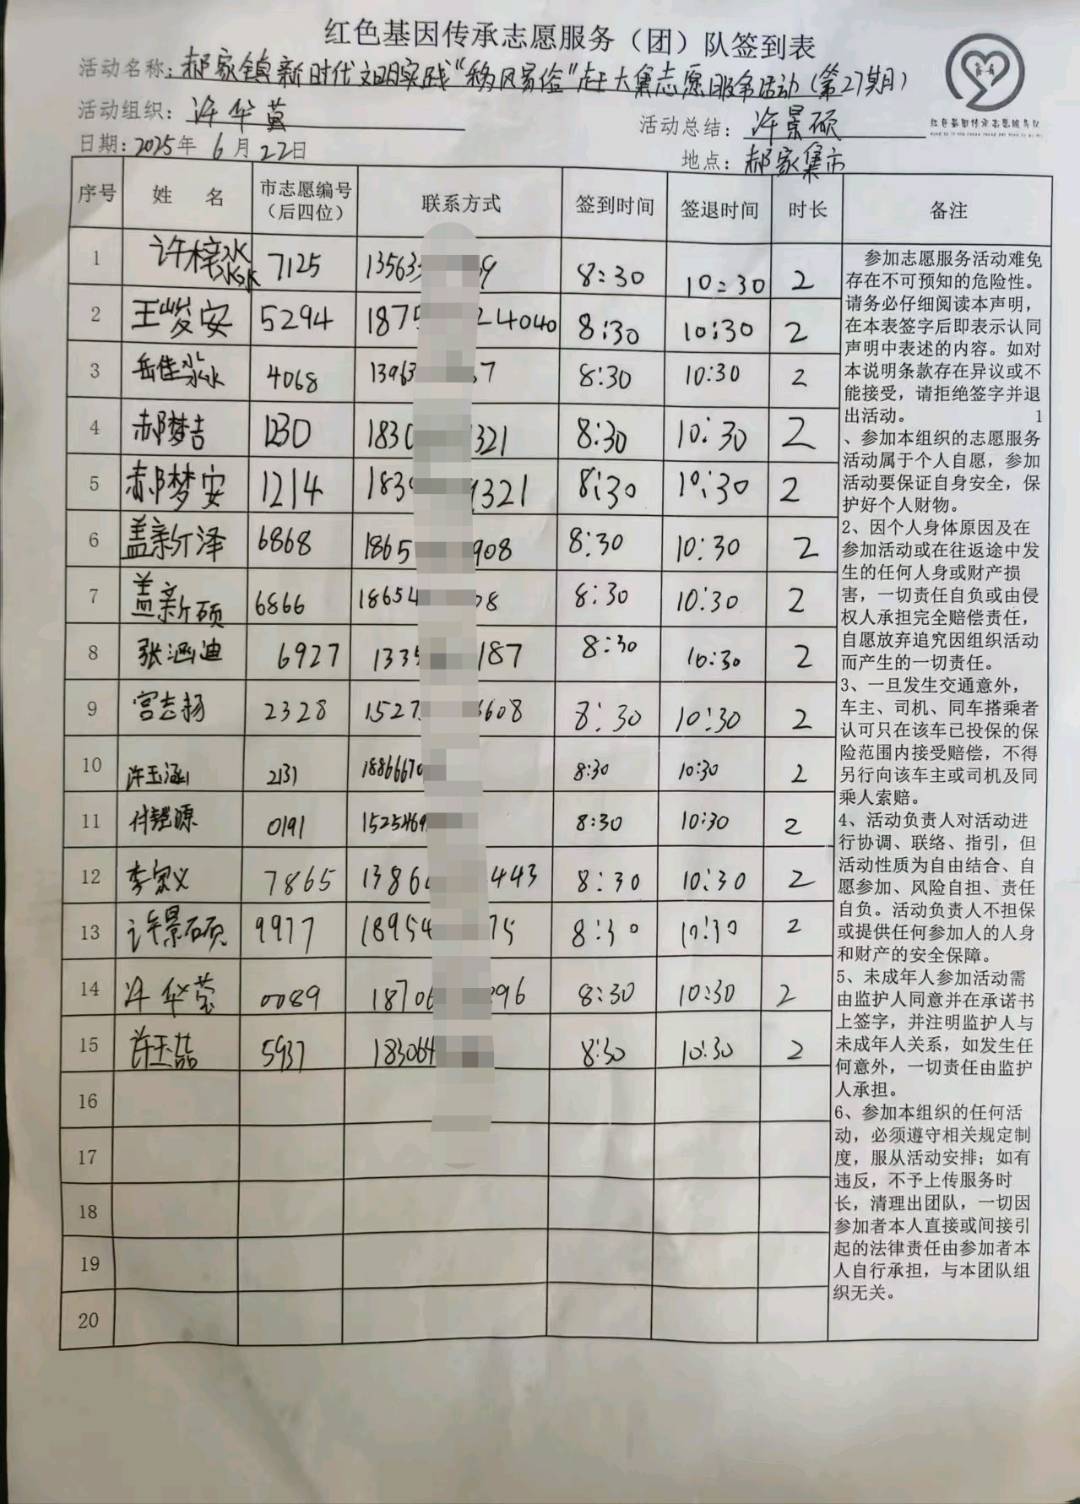 红色基因传承志愿服务（团）队签到表
活动名称：郝家镇新时代文明实践“移风易俗”赶大集志愿服务活动（第27期）
活动组织：许华莹
活动总结：许景硕
日期：2025年6月22日
地点：郝家集市
红色基因传承志愿服务队
序号 姓 名 市志愿编号（后四位） 联系方式 签到时间 签退时间 时长 备注
1 许梓 7125 13563 9 8:30 10:30 2
2 王峻安 5294 1875 24040 8:30 10:30 2
3 岳佳淼 4068 13963 7 8:30 10:30 2
4 郝梦吉 1230 1830 321 8:30 10:30 2
5 郝梦安 1214 183 1321 8:30 10:30 2
6 盖新泽 6868 1865 908 8:30 10:30 2
7 盖新硕 6866 18654 08 8:30 10:30 2
8 张涵迪 6927 1335 187 8:30 10:30 2
9 宫志扬 2328 1527 6608 8:30 10:30 2
10 许玉涵 2131 1886670 8:30 10:30 2
11 付铠源 0191 1525469 8:30 10:30 2
12 李宗义 7865 1386 443 8:30 10:30 2
13 许景硕 9977 18954 75 8:30 10:30 2
14 许华莹 0089 18706 896 8:30 10:30 2
15 许玉喆 5937 183064 8:30 10:30 2
16
17
18
19
20
参加志愿服务活动难免
存在不可预知的危险性。
请务必仔细阅读本声明，
在本表签字后即表示认同
声明中表述的内容。如对
本说明条款存在异议或不
能接受，请拒绝签字并退
出活动。 1
、参加本组织的志愿服务
活动属于个人自愿，参加
活动要保证自身安全，保
护好个人财物。
2、因个人身体原因及在
参加活动或在往返途中发
生的任何人身或财产损
害，一切责任自负或由侵
权人承担完全赔偿责任，
自愿放弃追究因组织活动
而产生的一切责任。
3、一旦发生交通意外，
车主、司机、同车搭乘者
认可只在该车已投保的保
险范围内接受赔偿，不得
另行向该车主或司机及同
乘人索赔。
4、活动负责人对活动进
行协调、联络、指引，但
活动性质为自由结合、自
愿参加、风险自担、责任
自负。活动负责人不担保
或提供任何参加人的人身
和财产的安全保障。
5、未成年人参加活动需
由监护人同意并在承诺书
上签字，并注明监护人与
未成年人关系，如发生任
何意外，一切责任由监护
人承担。
6、参加本组织的任何活
动，必须遵守相关规定制
度，服从活动安排；如有
违反，不予上传服务时
长，清理出团队，一切因
参加者本人直接或间接引
起的法律责任由参加者本
人自行承担，与本团队组
织无关。